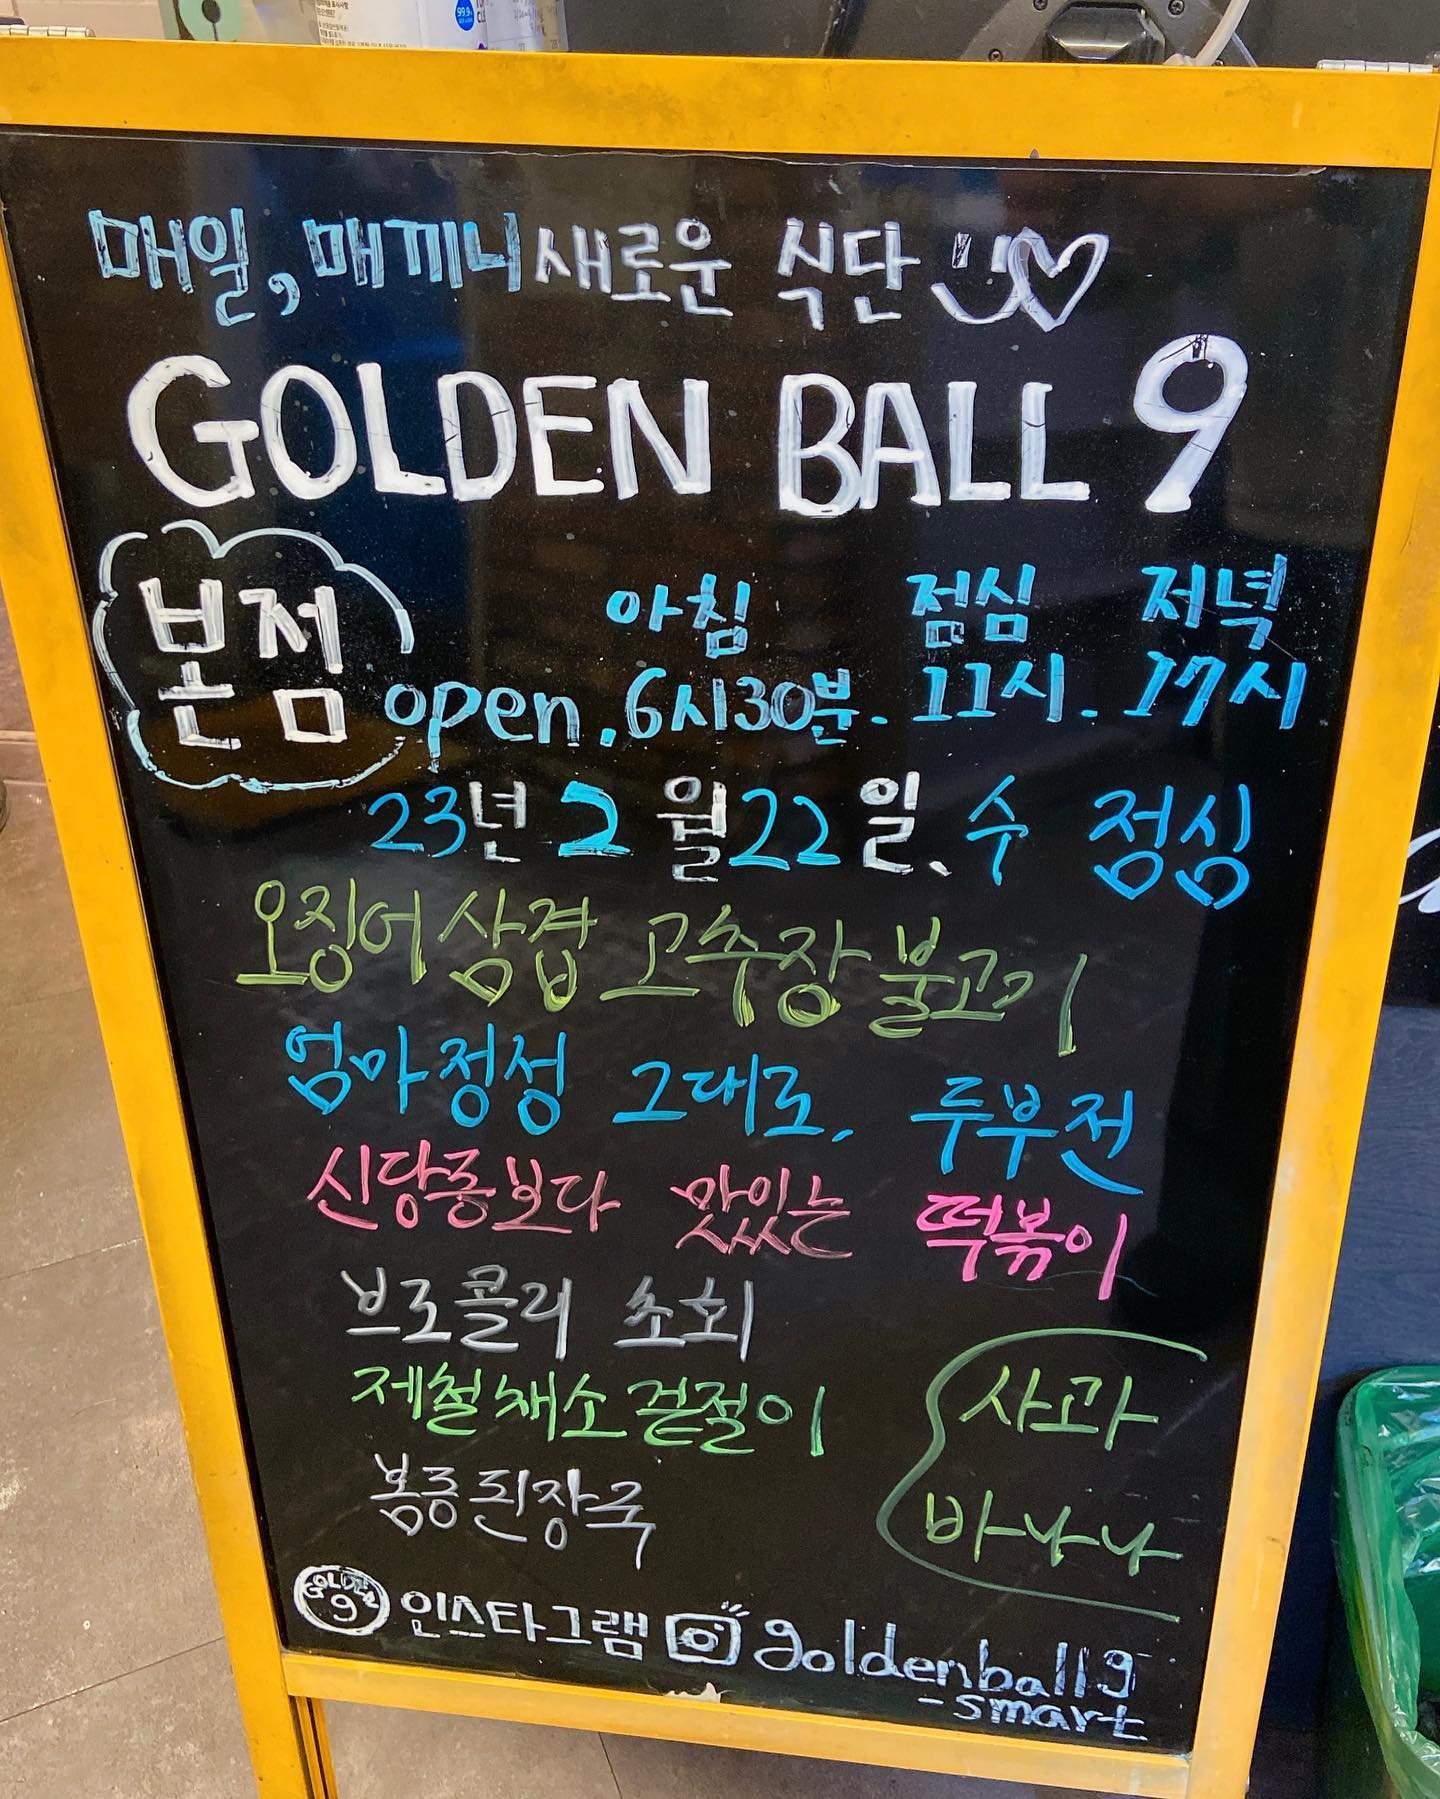 매일, 매끼니 새로운 식단
GOLDEN BALL 9
본점
아침 점심 저녁
open. 6시30분. 11시. 17시
23년 2월 22일. 수 점심
오징어삼겹 고추장불고기
엄마정성 그대로, 두부전
신당동보다 맛있는 떡볶이
브로콜리 초회
제철채소겉절이
사과
바나나
봄동된장국
GOLDEN 9 인스타그램 goldenball9
_smart